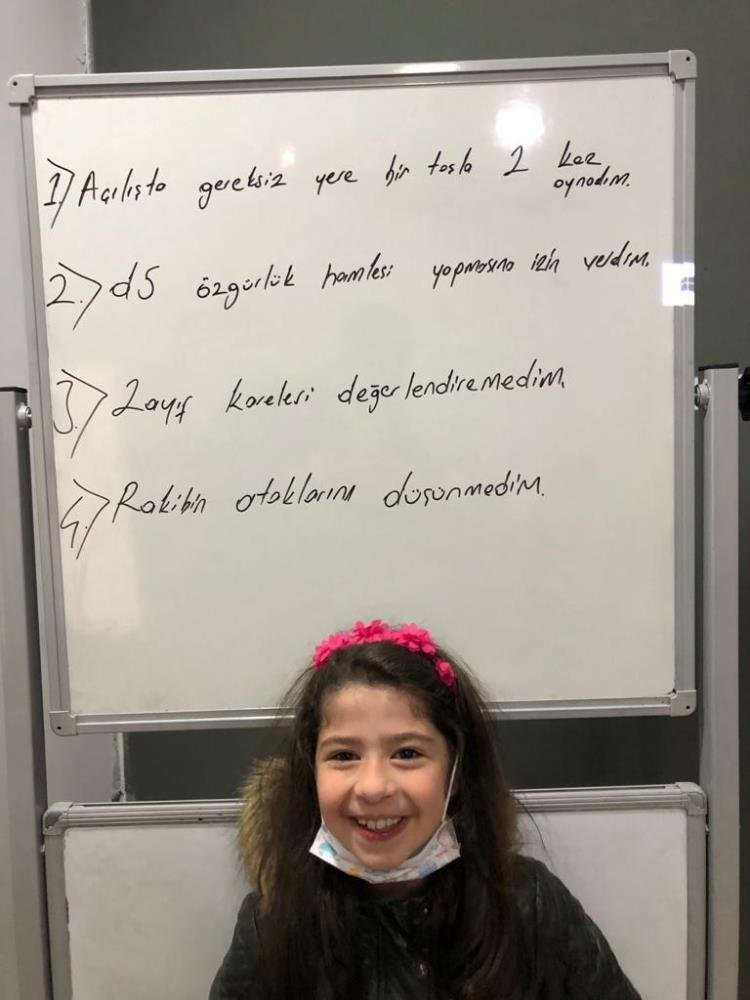 1) Açılışta gereksiz yere bir taşla 2 kez oynadım.
2.) d5 özgürlük hamlesi yapmasına izin verdim.
3.) Zayıf kareleri değerlendiremedim.
4.) Rakibin ataklarını düşünmedim.